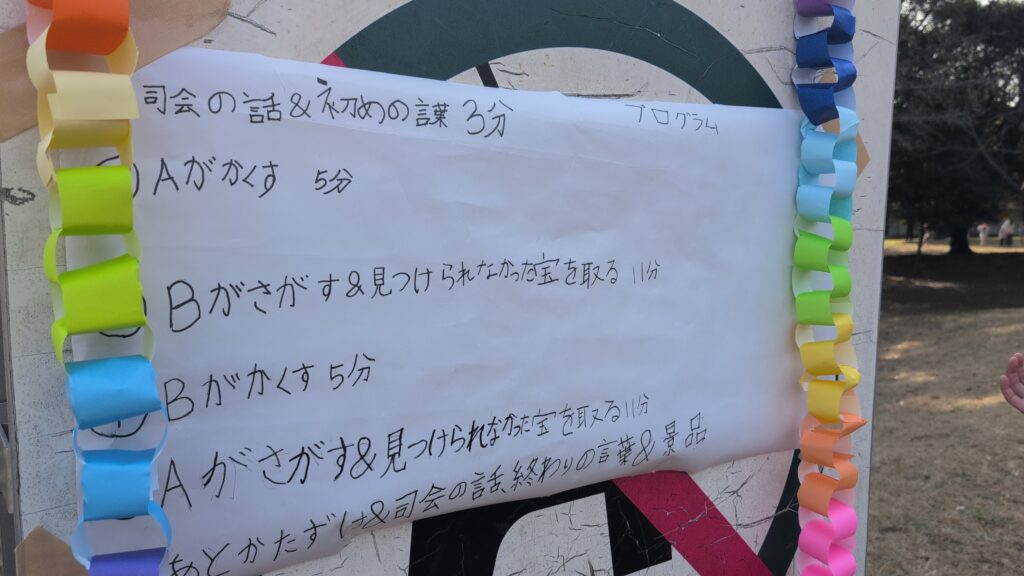 プログラム
司会の話&初めの言葉 3分
Aがかくす 5分
Bがさがす&見つけられなかった宝を取る 11分
④Bがかくす 5分
Aがさがす&見つけられなかった宝を取る 11分
あとかたずけ&司会の話 終わりの言葉&景品